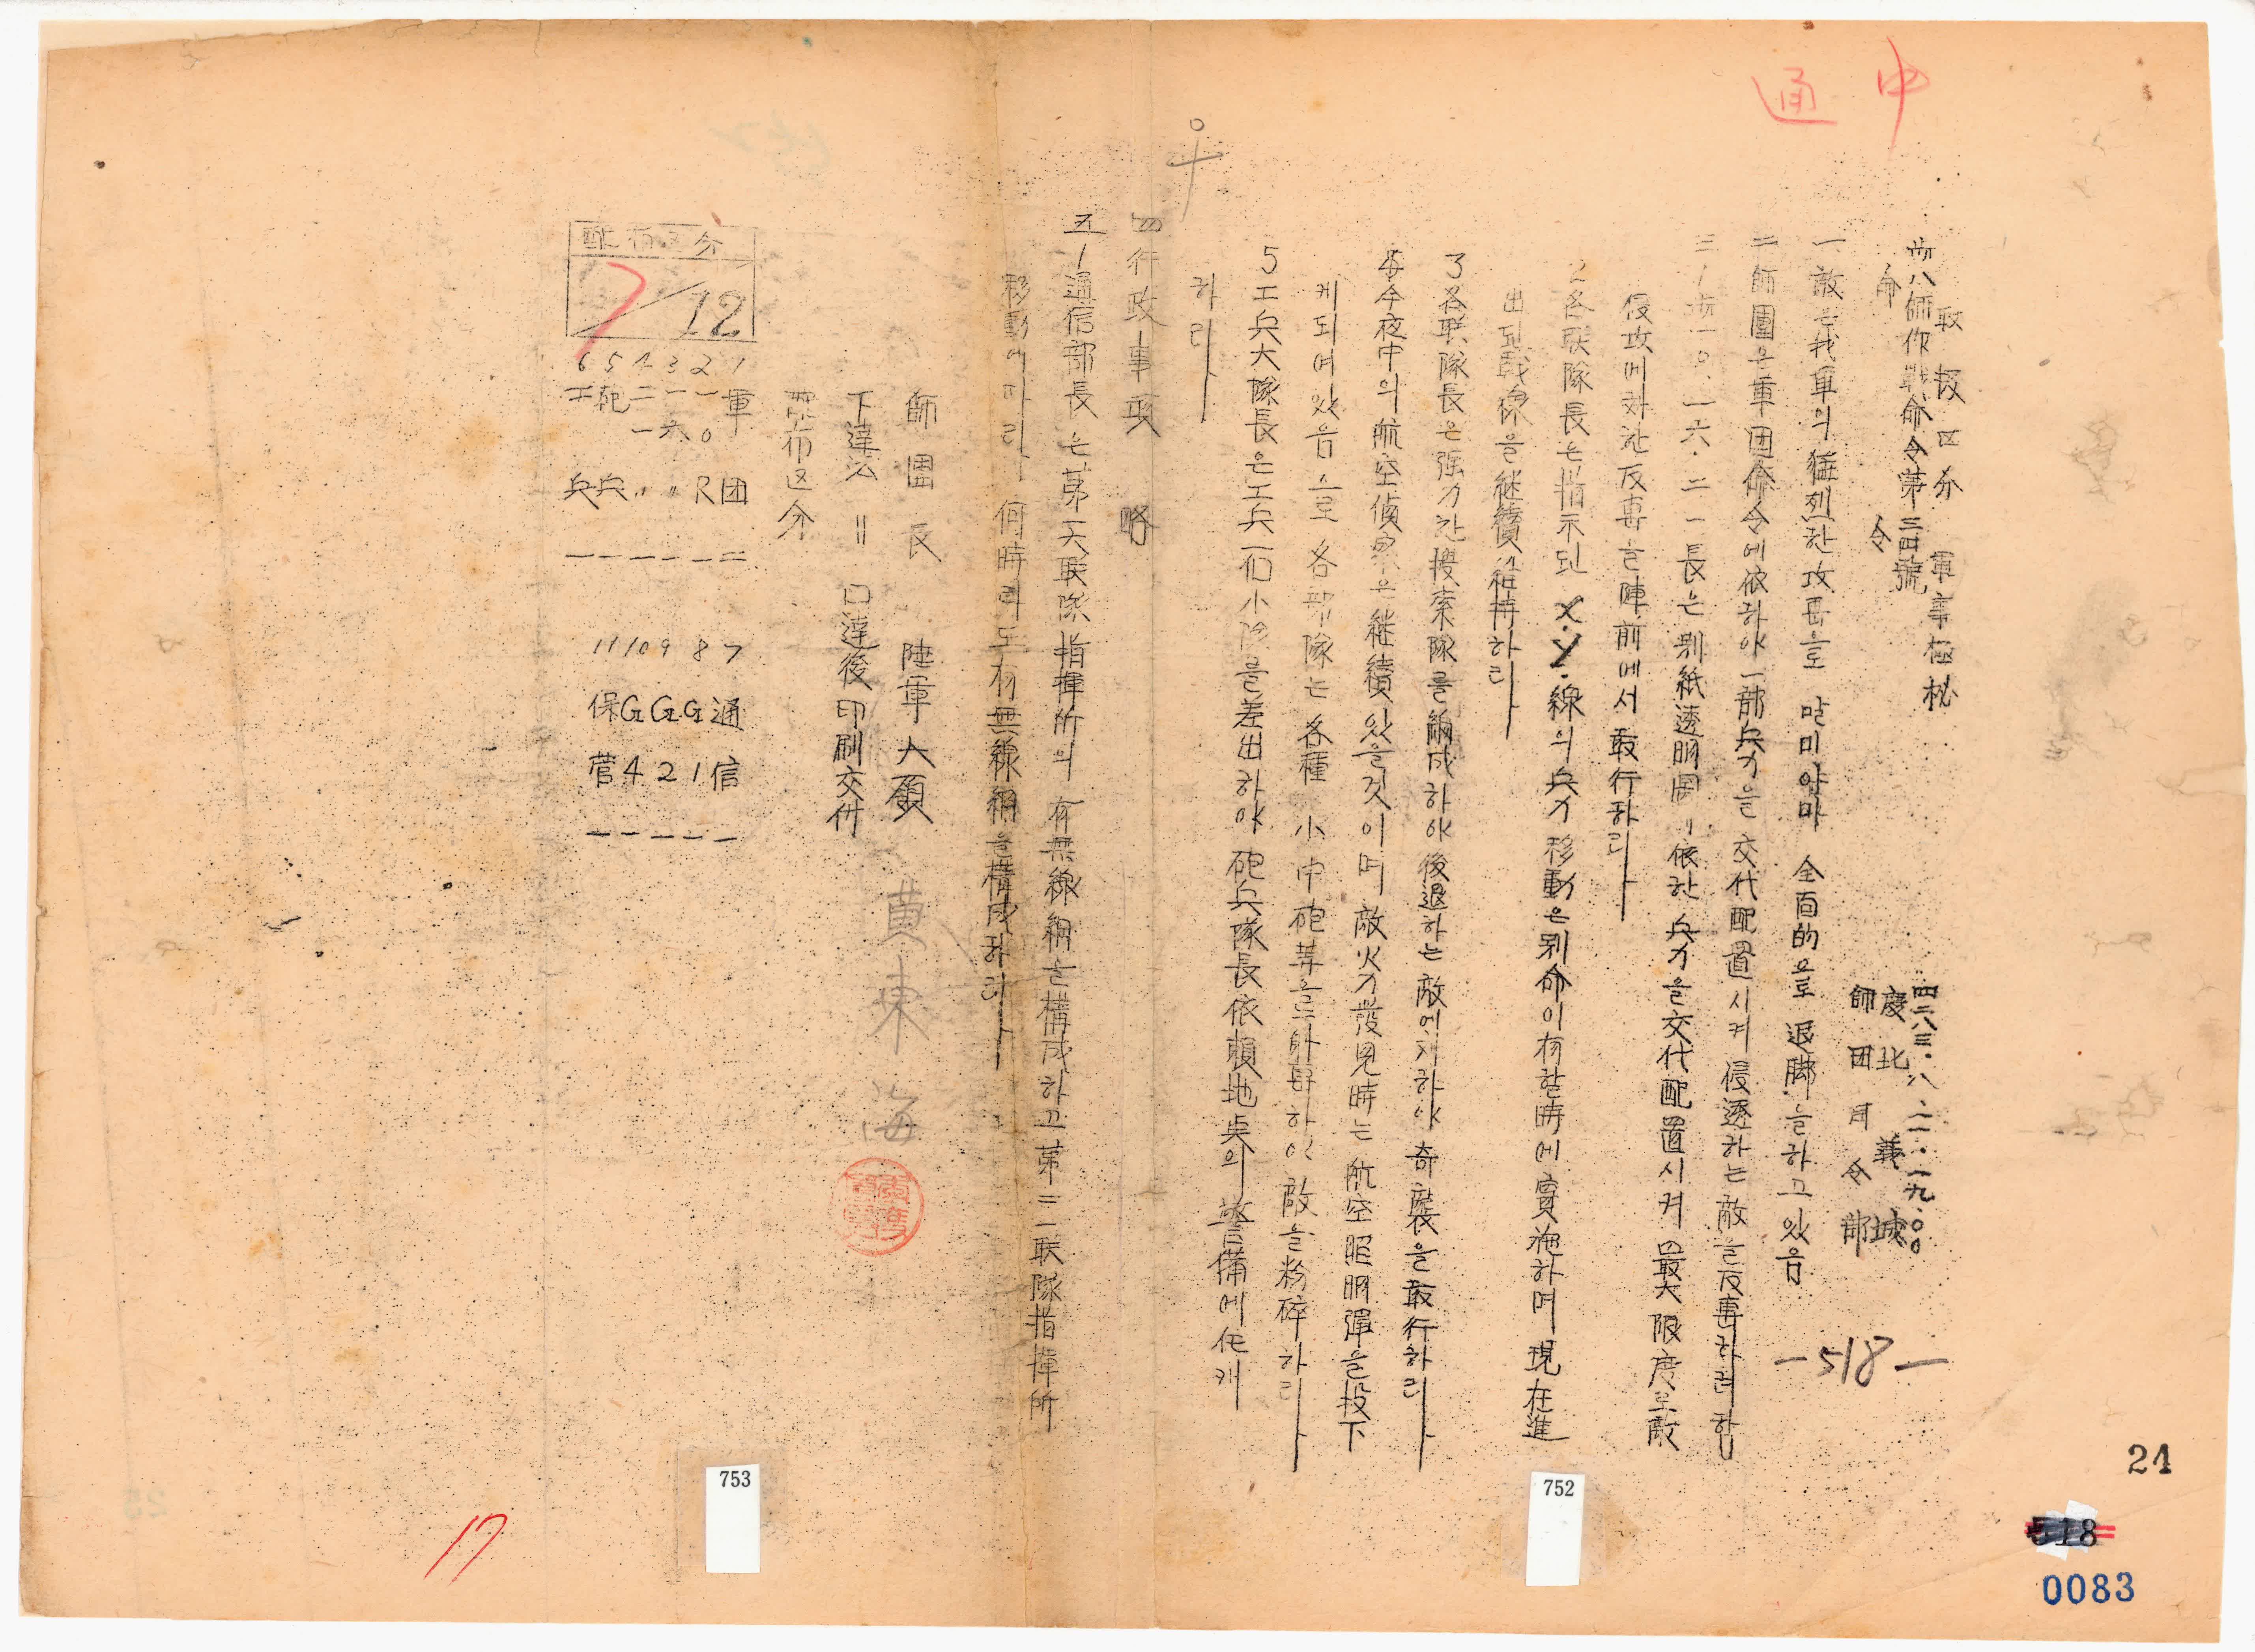 中
通
取扱区分 軍事極秘
步八師作戰命令第三四號
命 令
四二八三.八.二一.一九.〇〇
慶北 義城
師団司令部
一 敵은 我軍의 猛烈한 攻擊으로 말미아마 全面的으로 退脚을하고 있음
二 師團은 軍团命令에依하야 一部兵力을 交代配置시켜 侵透하는敵을反擊하려함
三 1 步一〇.一六.二一長은 別紙透明圖에依한 兵力을交代配置시켜 最大限度로敵
侵攻에対한反擊을陣前에서敢行하라
2 各联隊長은指示된 X.Y.線의兵力移動은別命이有할時에實施하며 現在進
出된戰線을継續維持하라
3 各联隊長은强力한搜索隊를編成하야後退하는敵에対하야奇襲을敢行하라
4 今夜中의航空偵察은継續있을것이며敵火力發見時는航空照明彈을投下
케되여있음으로各部隊는各種小中砲等으로射擊하야敵을粉碎하라
5 工兵大隊長은工兵一個小隊를差出하야砲兵隊長依賴地点의警備에任케
하라
四 行政事項 略
五 1 通信部長은第一六联隊指揮所의有無線網을構成하고第二一联隊指揮所
移動에따라何時라도有無線網을構成하라
師團長 陸軍大領 黄東海
下達法 = 口達後印刷交付
配布区分
配布区分
7/12
1 軍団 二
2 一〇R 一
3 一六〃 一
4 二一〃 一
5 砲兵 一
6 工兵 一
7 通信 一
8 G1 一
9 G2 一
10 G4 一
11 保管 一
―518―
24
518
0083
752
753
17